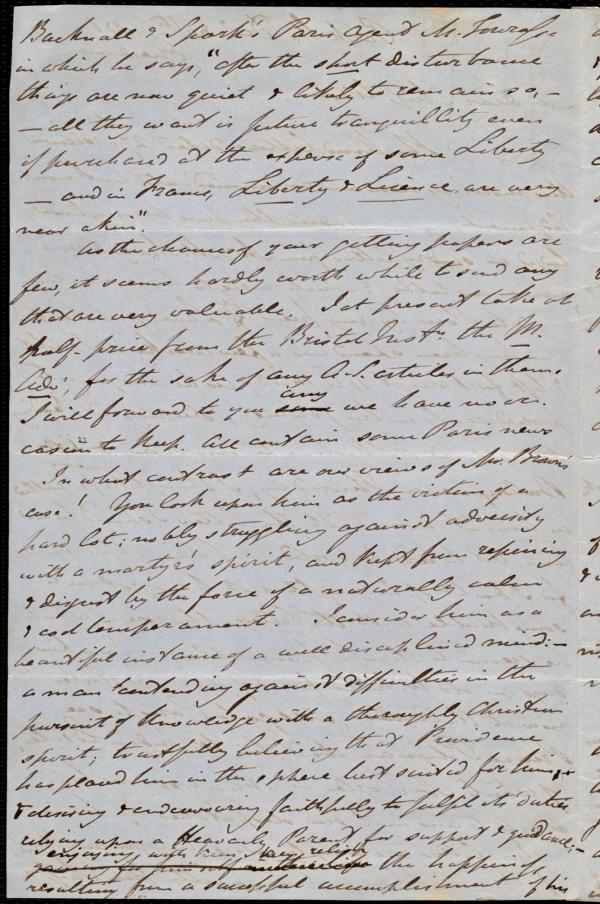 Bucknall & Spark's Paris agent M.
in which he says, "after the short disturbance
things are now quiet & likely to remain so, –
– all they want is future tranquillity even
if purchased at the expense of some Liberty
– and in France, Liberty & Licence are very
near akin".
As the chances of your getting papers are
few, it seems hardly worth while to send any
that are very valuable. I at present take at
half-price from the Bristol Inst. the M.
Adv., for the sake of any A.S. articles in them.
I will forward to you any we have no oc-
casion to keep. All contain some Paris news
In what contrast are our views of Mr. Brown's
case! You look upon him as the victim of a
hard lot; nobly struggling against adversity
with a martyr's spirit, and kept from repining
& disgust by the force of a naturally calm
& cool temperament. I consider him as a
beautiful instance of a well disciplined mind: –
a man contending against difficulties in the
pursuit of knowledge with a thoroughly Christian
spirit; trustfully believing that Providence
has placed him in the sphere best suited for him, &
& desiring & endeavouring faithfully to fulfil its duties
relying upon a Heavenly Parent for support & guidance; –
enjoying with very relish the happiness
resulting from a successful accomplishment of his